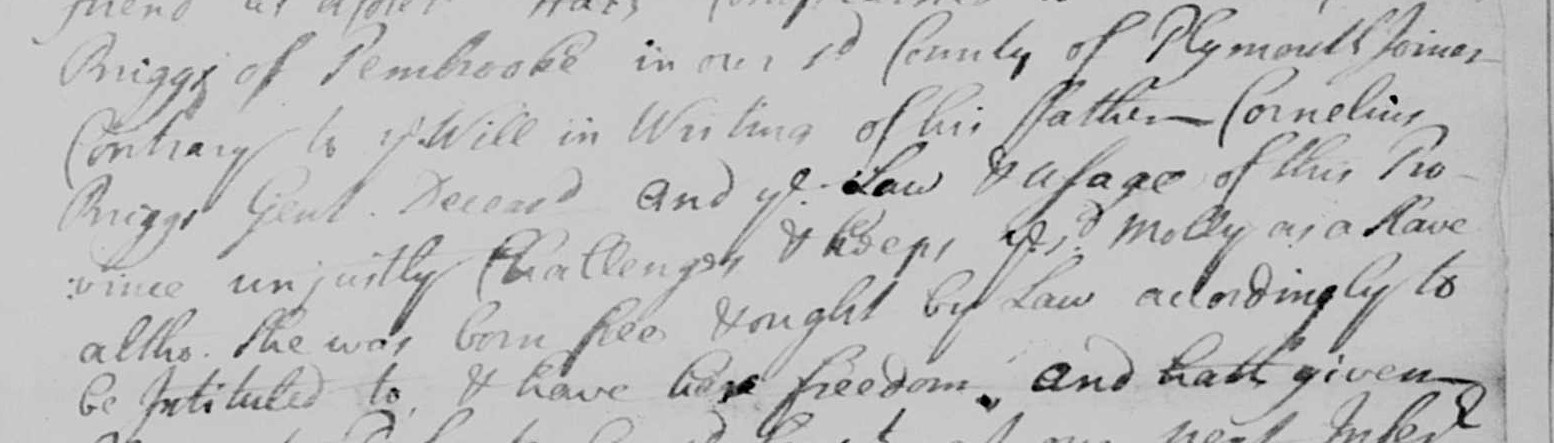 friend
Briggs of Pembrooke in our sd County of Plymouth Joiner
Contrary to ye Will in Writing of his ffather Cornelius
Briggs Gent. Deceasd and ye Law & usage of this Pro-
:vince unjustly Challenges & keeps ye sd. Molly as a slave
altho. she was born free & ought by Law accordingly to
be Intituled to & have her freedom, and hath given
at our next